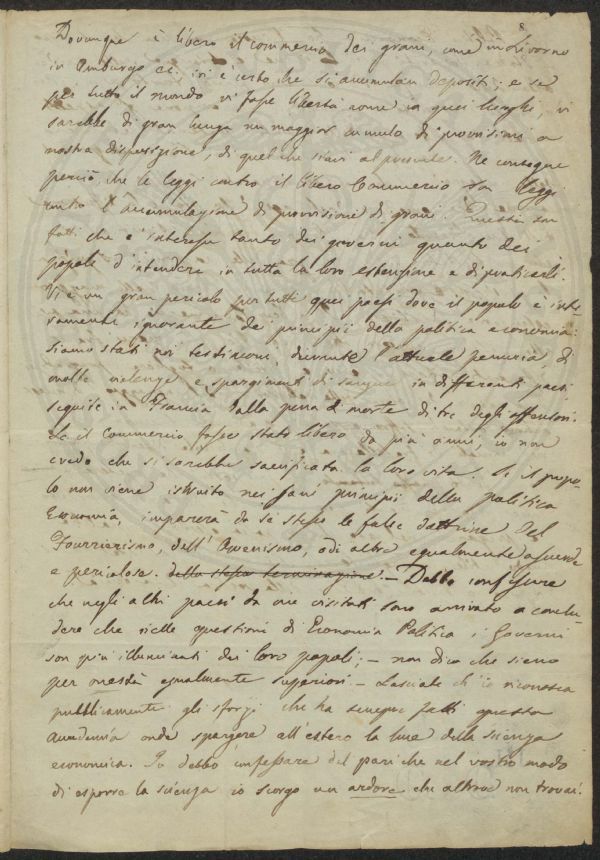 8
Dovunque è libero il commercio dei grani, come in Livorno
in Amburgo ivi è certo che si accumulan depositi; e se
per tutto il mondo vi fosse libertà come in quei luoghi, vi
sarebbe di gran lunga un maggior cumulo di provvisioni a
nostra disposizione, di quel che siavi al presente. Ne consegue
perciò, che le leggi contro il libero Commercio son leggi
contro l'accumulazione di provvisione di grani. Questi son
fatti che è interesse tanto dei governi quanto dei
popoli d'intendere in tutta la loro estensione e di praticarli.
Vi è un gran pericolo per tutti quei paesi dove il popolo è inte-
ramente ignorante dei principii della politica economia:
siamo stati noi testimoni, durante l'attuale penuria, di
molte violenze e spargimenti di sangue in differenti paesi
seguite in Francia dalla pena di morte di tre degli offensori.
Se il commercio fosse stato libero da più anni, io non
credo che si sarebbe sacrificata la loro vita. Se il popo-
lo non viene istruito nei sani principii della politica
Economia, imparerà da se stesso le false dottrine del
Fourrierismo, dell'Owenismo, o di altre egualmente assurde
e pericolose. della stessa terminazione. – Debbo confessare
che negli altri paesi da me visitati sono arrivato a conclu-
dere che nelle questioni di Economia Politica i Governi
son più illuminati dei loro popoli; – non dico che sieno
per onestà egualmente superiori. – Lasciate ch'io riconosca
pubblicamente gli sforzi che ha sempre fatti questa
Accademia onde spargere all'estero la luce della scienza
economica. Io debbo confessare del pari che nel vostro modo
di esporre la scienza io scorgo un ardore che altrove non trovai.